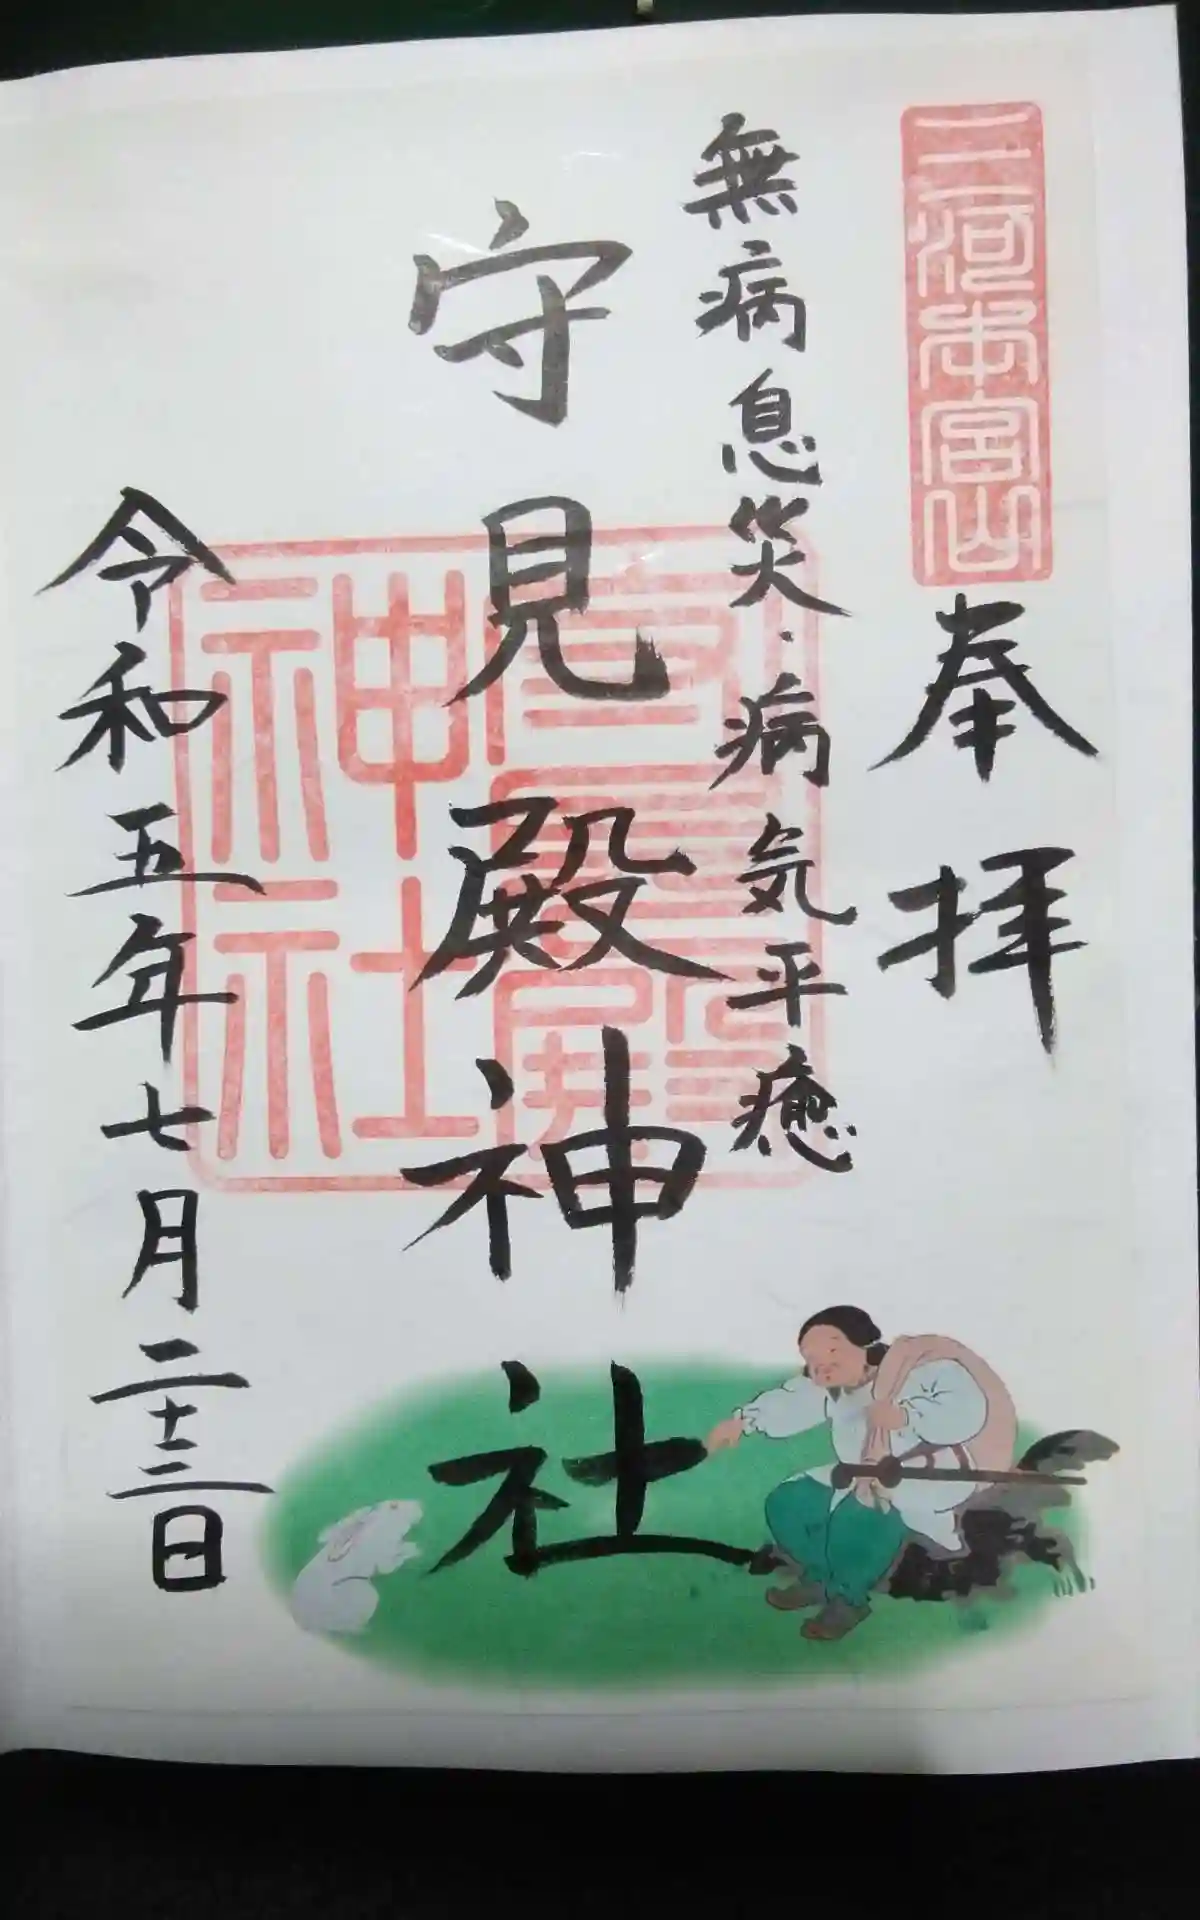 三河本宮山
奉拝
無病息災・病気平癒
守見殿神社
守見殿
神社
令和五年七月二十二日